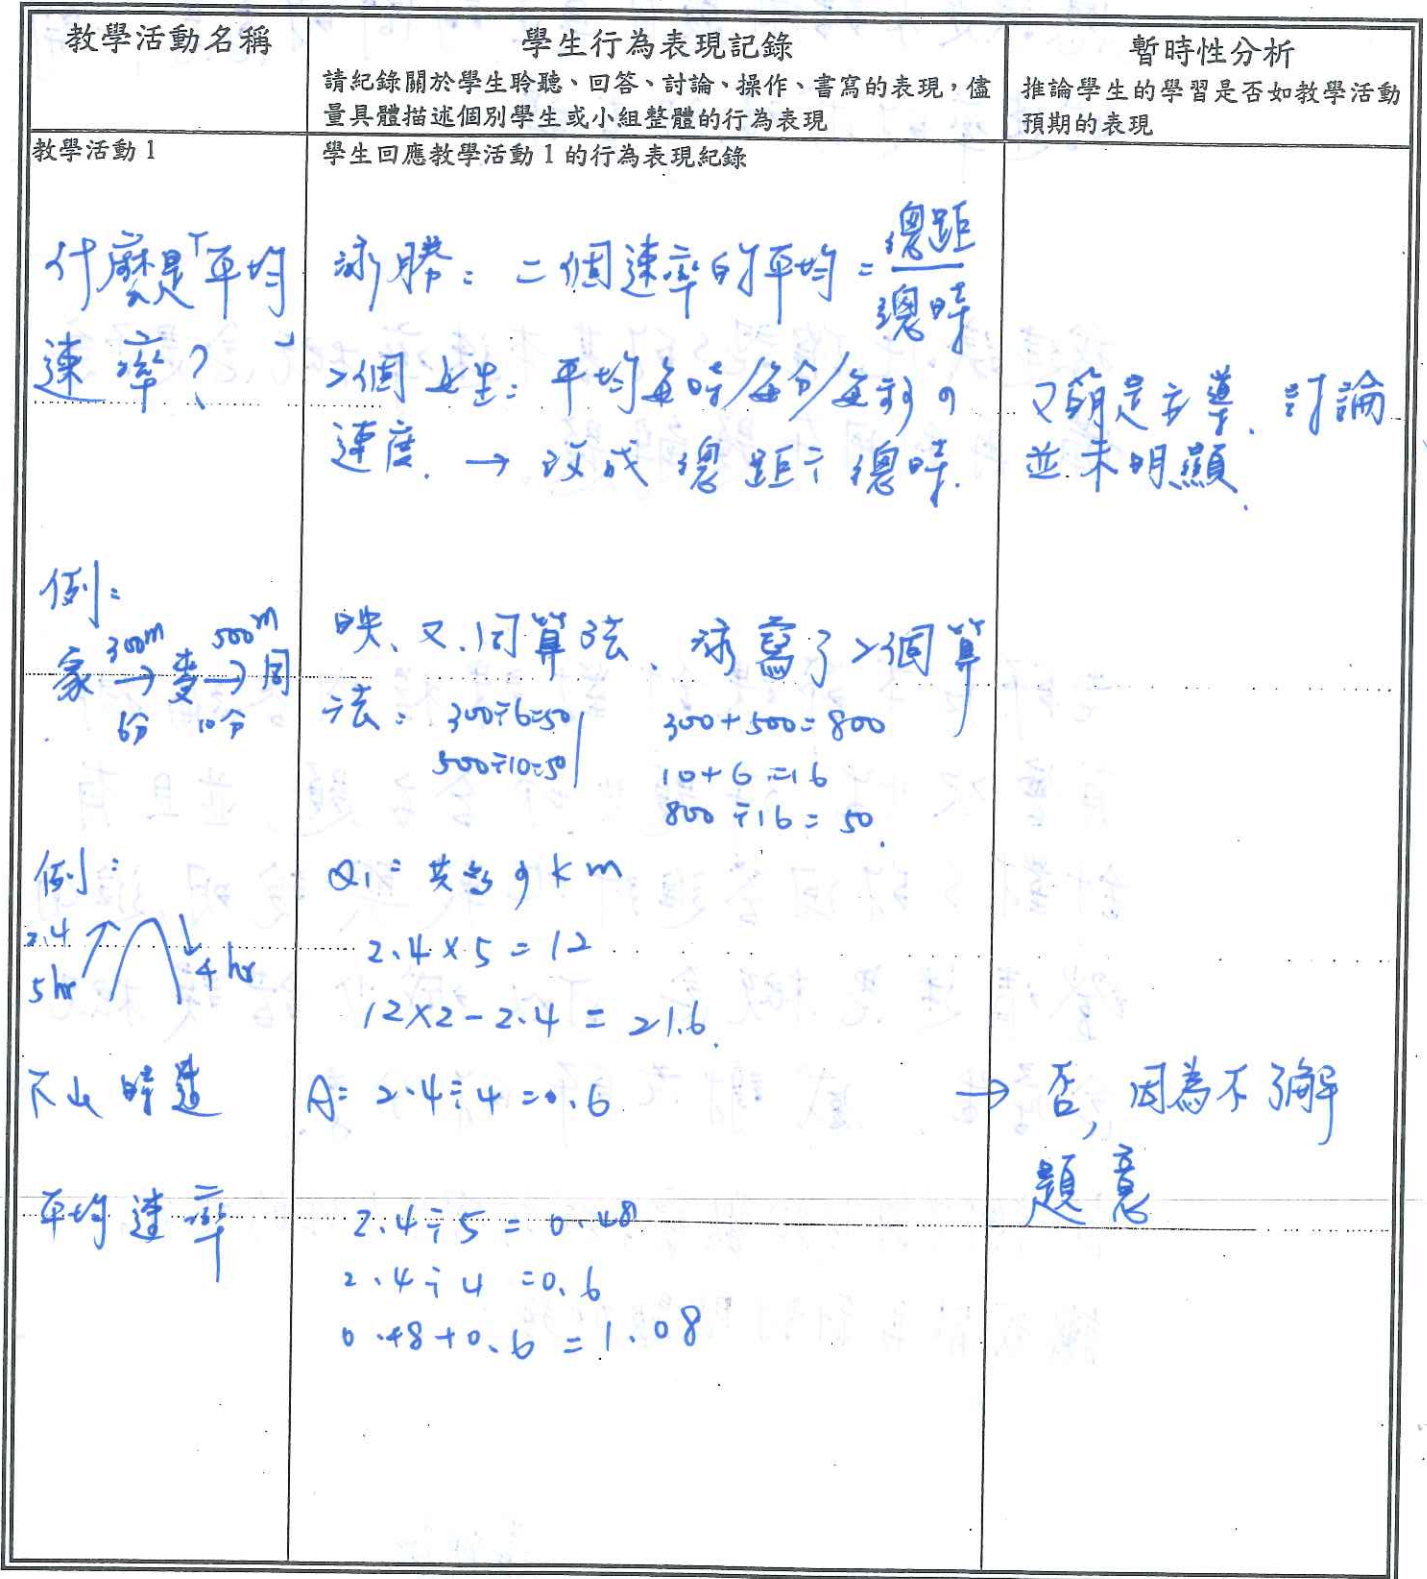 教學活動名稱
學生行為表現記錄
請紀錄關於學生聆聽、回答、討論、操作、書寫的表現，儘
量具體描述個別學生或小組整體的行為表現
暫時性分析
推論學生的學習是否如教學活動
預期的表現
教學活動 1
學生回應教學活動 1 的行為表現紀錄
什麼是「平均
速率？」
泳勝：二個速率的平均 = 總距/總時
2個女生：平均每時/每分/每秒の
速度. → 改成總距÷總時.
又萌是主導、討論
並未明顯.
例：
家 300m → 6分 麥 500m → 10分 周
映、又、同算法、泳寫了2個算
法：300÷6=50
500÷10=50
300+500=800
10+6=16
800÷16=50.
例：
2.4
5hr
4hr
Q1：共多少km
2.4×5=12
12×2-2.4=21.6.
下山時速
A: 2.4÷4=0.6
→ 否, 因為不了解
題意
平均速率
2.4÷5=0.48
2.4÷4=0.6
0.48+0.6=1.08